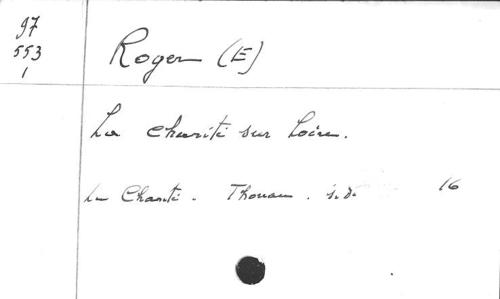 97
553
1
Roger (E)
La charité sur Loire.
La Charité. Thouau. s.d. 16